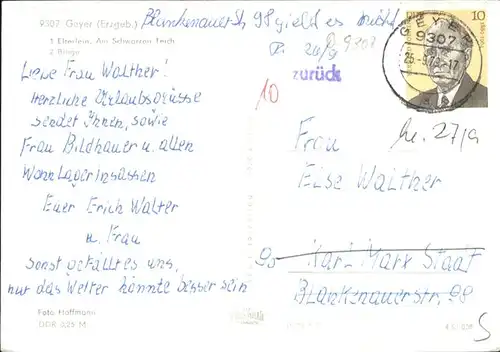 9307 Geyer (Erzgeb.)
Blankenauer Str 98 gield es nicht
1 Elterlein, Am Schwarzen Teich
2 Binge
R. 9307
zurück
10
GEYER
9307
10
Liebe Frau Walther!
Herzliche Urlaubsgrüsse
sendet Ihnen, sowie
Frau Bildhauer u. allen
Wohnlagerinsassen
Euer Erich Walter
u. Frau
Sonst gefällt es uns,
nur das Wetter könnte besser sein
Frau
Else Walther
90
Karl-Marx Staat
Blankenauerstr. 98
Foto Hoffmann
DDR 0,25 M
5